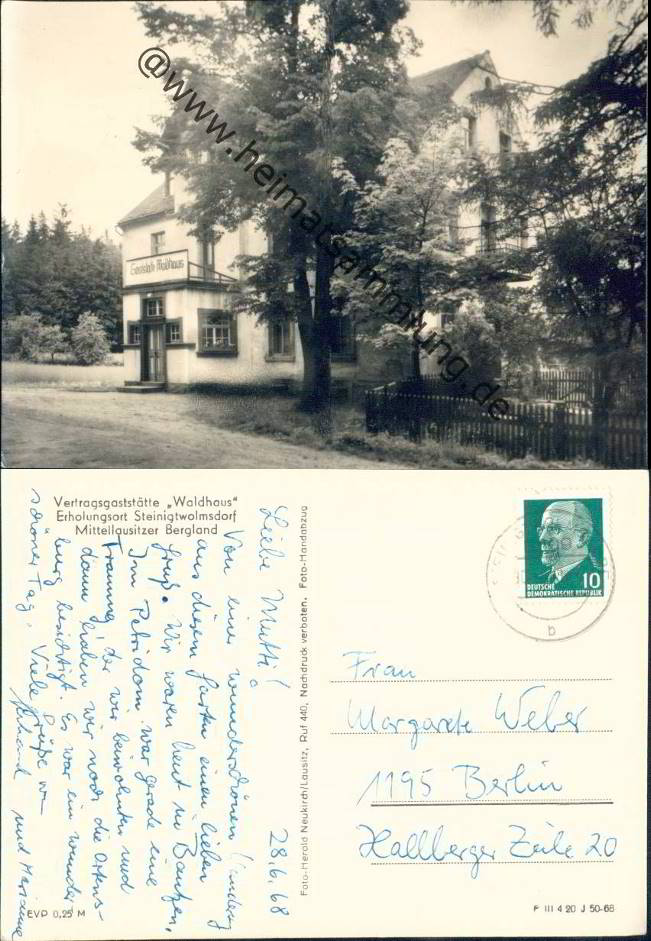 @www.heimatsammlung.de
Gaststätte Waldhaus
Vertragsgaststätte „Waldhaus"
Erholungsort Steinigtwolmsdorf
Mittellausitzer Bergland
28.6.68
Liebe Mutti!
Von einer wunderschönen
aus diesem Garten einen lieben
Gruß. Wir waren heut in Bautzen,
Im Petridom war gerade eine
Trauung, der wir beiwohnten und
dann haben wir noch die Ortens-
burg besichtigt. Es war ein wunder-
schöner Tag. Viele Grüße
und Marianne
EVP 0,25 M
Foto-Herold Neukirch/Lausitz, Ruf 440, Nachdruck verboten. Foto-Handabzug
10
DEUTSCHE
DEMOKRATISCHE REPUBLIK
b
Frau
Margarete Weber
1195 Berlin
Hallberger Zeile 20
F III 4 20 J 50-68